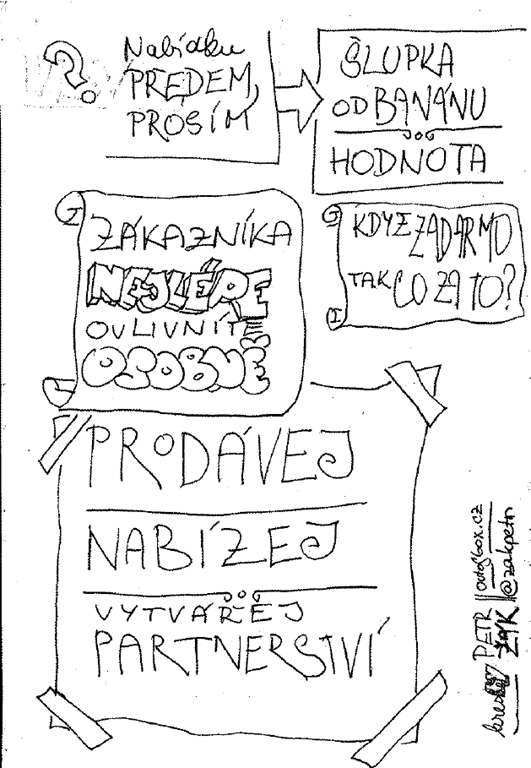 ?
Nabídku
PŘEDEM,
PROSÍM
ŠLUPKA
OD BANÁNU
HODNOTA
ZÁKAZNÍKA
NEJLÉPE
OVLIVNÍTE
OSOBNĚ
KDYŽ ZADARMO
TAK CO ZA TO?
PRODÁVEJ
NABÍZEJ
VYTVÁŘEJ
PARTNERSTVÍ
PETR ŽÁK
@zakpetr